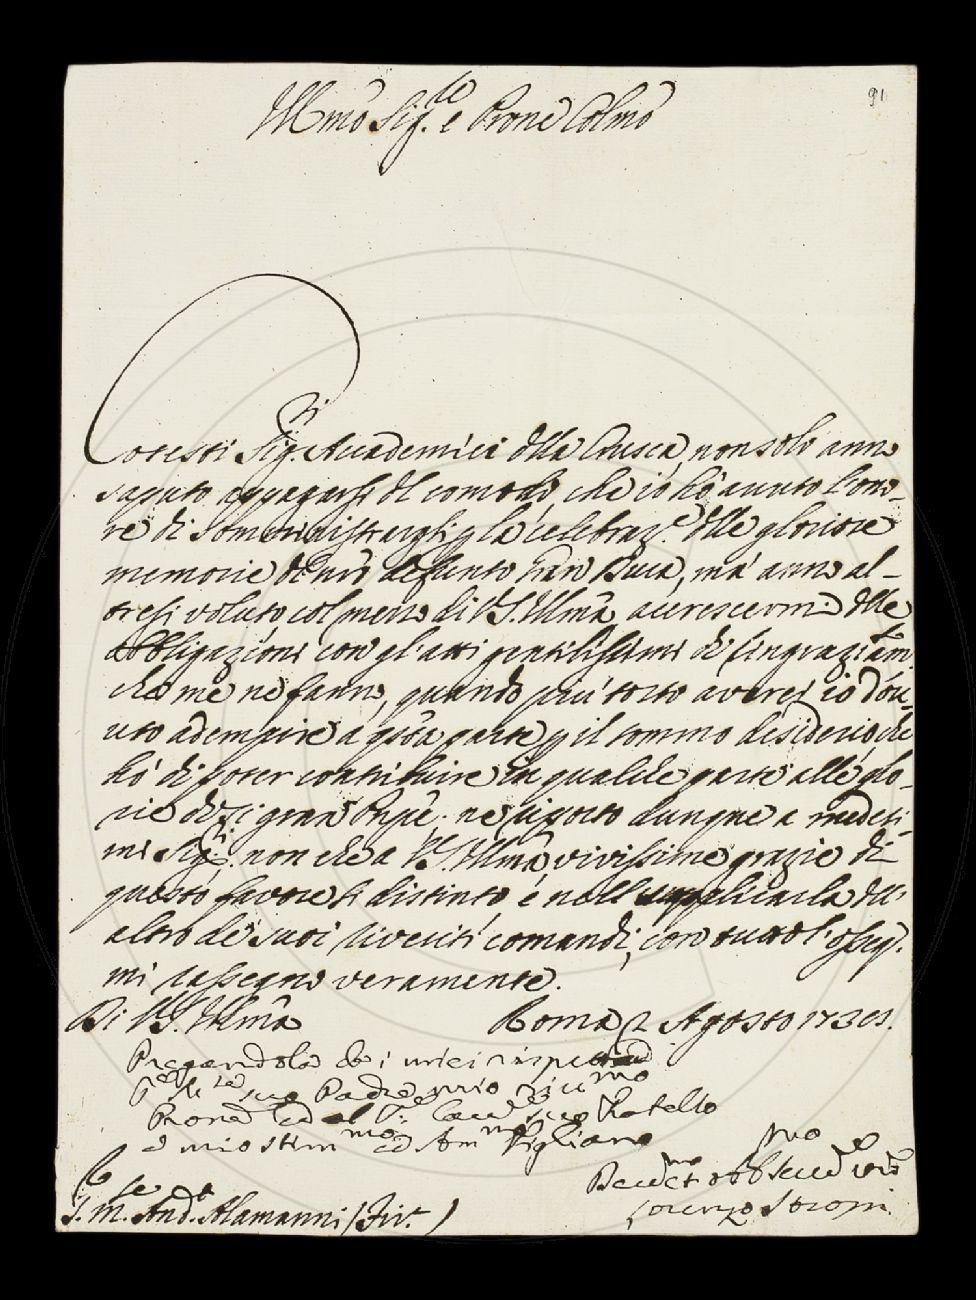 91
Ill.mo Sig.re e Prone Colmo
Cotesti Sig.ri Accademici della Crusca, non solo anno
saputo appagarsi del comodo, che io hò auuto l'ono-
re di somministrargli p la celebraz.e delle gloriose
memorie del nrõ defunto Gran Duca, mà anno al-
tresi voluto col mezzo di V.S. Illma accrescermi delle
obbligazioni con gl'atti gentilissimi di ringraziam.to
che me ne fanno, quando più tosto averei io dou-
uto adempire a qsta parte p il sommo desiderio, che
hò di poter contribuire in qualche parte alle glo-
rie di si gran Npe. ne riporto dunque a medesi-
mi Sig.ri non che a V.S. Illma vivissime grazie di
questo favore si distinto, e nell supplicarla dell'
altro de suoi riveriti comandi, con tutto l'osseq.
mi rassegno veramente.
Di V.S. Illma Roma 2 Agosto 173
Pregandola de i miei rispetti
suo Padre mio
Prone ed al suo Fratello
e mio stim.mo ed Am.mo Vigliano
S.r M.se And.a Alamanni (Fir.e)
Deu.mo et obb
Lorenzo